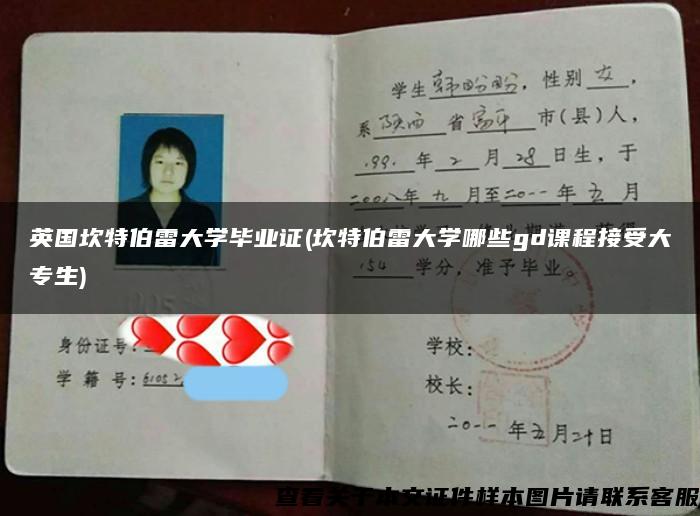 学生韩盼盼，性别女，
系陕西省富平市(县)人，
1991年2月28日生，于
二00八年九月至二0一一年五月
英国坎特伯雷大学毕业证(坎特伯雷大学哪些gd课程接受大
专生)
154学分，准予毕业。
身份证号：
学籍号：61052
学校：
校长：
二0一一年五月二十日
查看关于本文证件样本图片请联系客服